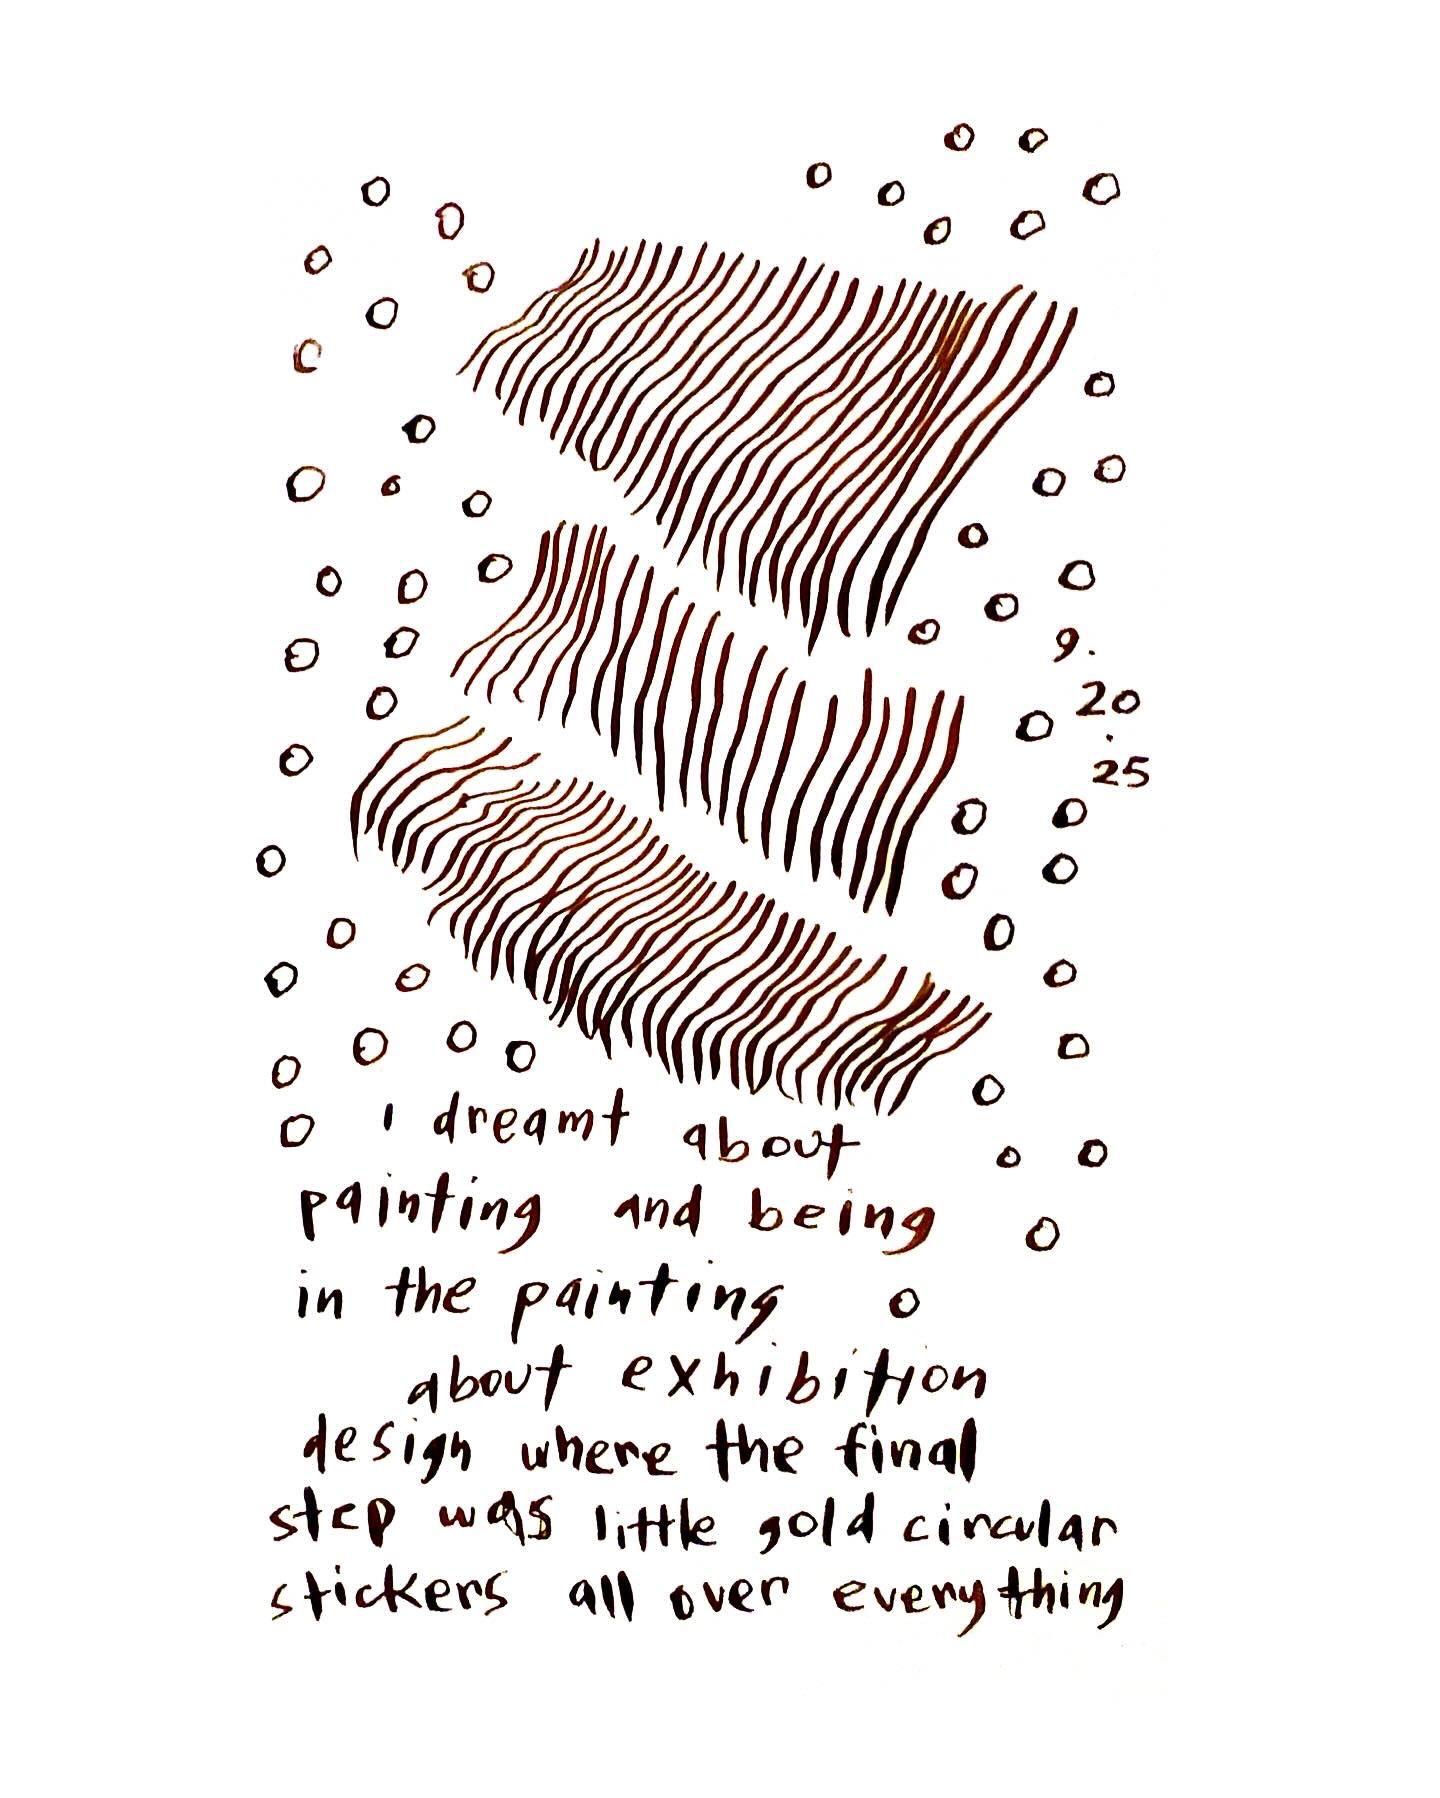 9.
20
.
25
I dreamt about
painting and being
in the painting
about exhibition
design where the final
step was little gold circular
stickers all over everything